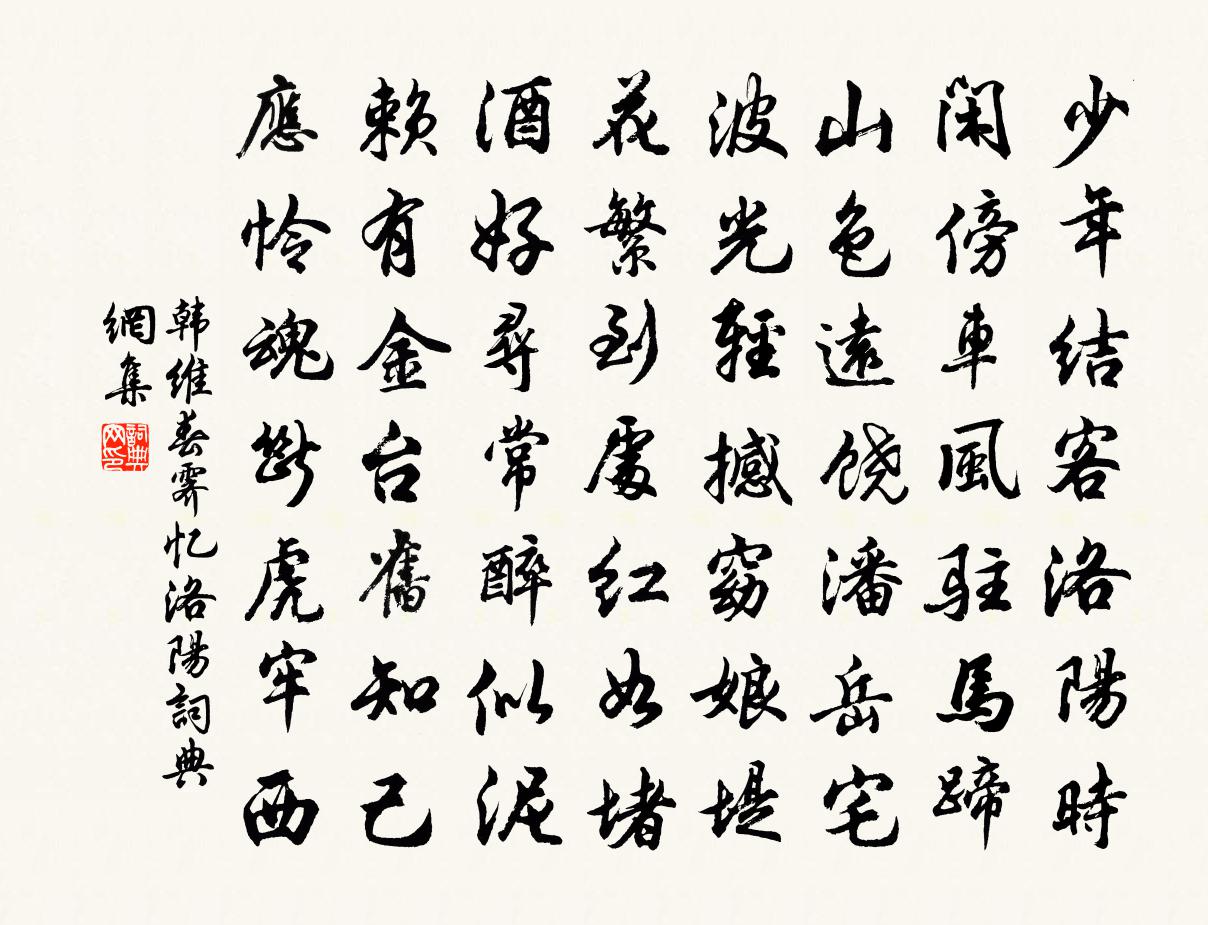 少年结客洛陽時
閑傍車風駐馬蹄
山色遠饶潘岳宅
波光輕撼窈娘堤
花繁到處红如堵
酒好尋常醉似泥
赖有金台舊知己
應怜魂斷虎牢西
韩維春霽忆洛陽詞典
網集
詞典网印